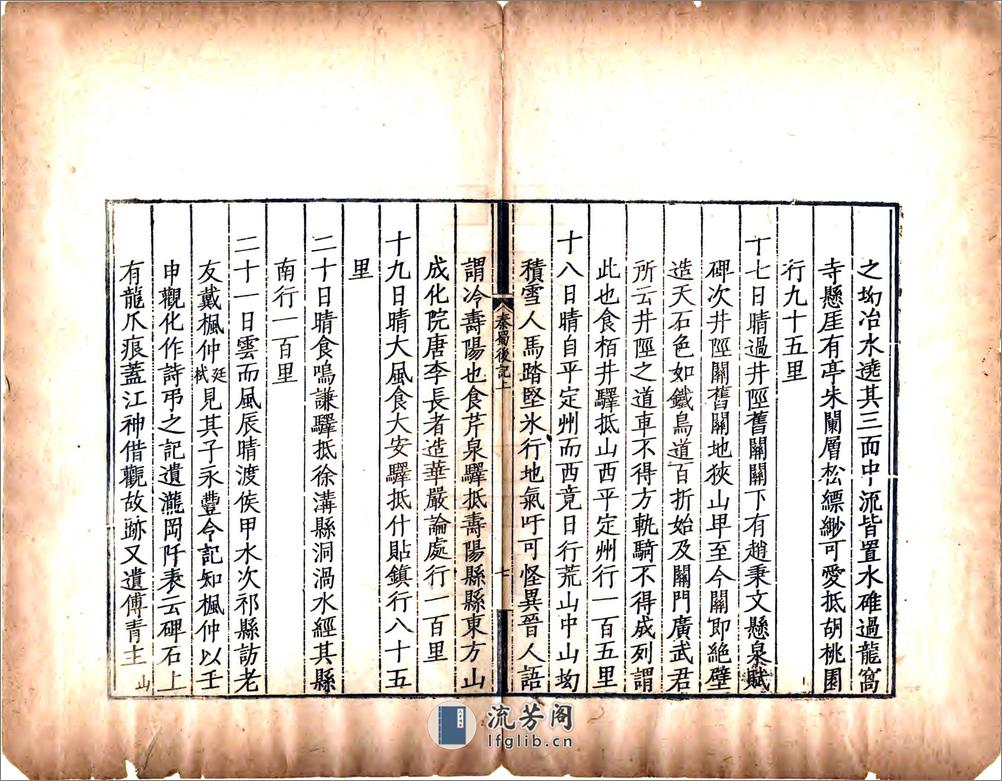 之坳冶水遶其三面中沠皆置水碓過龍窩
寺懸厓有亭朱闌層松縹緲可愛抵胡桃園
行九十五里
十七日晴過井陘舊關關下有趙秉文懸泉賦
碑次井陘關舊關地狹山卑至今關即絕壁
造天石色如鐵鳥道百折始及關門廣武君
所云井陘之道車不得方軌騎不得成列謂
此也食栢井驛抵山西平定州行一百五里
十八日晴自平定州而西竟日行荒山中山坳
積雪人馬踏堅氷行地氣吁可怪異晉人語
秦蜀後記上
十
謂冷壽陽也食芹泉驛抵壽陽縣縣東方山
成化院唐李長者造華嚴論處行一百里
十九日晴大風食大安驛抵什貼鎮行八十五
里
二十日晴食鳴謙驛抵徐溝縣洞渦水經其縣
南行一百里
二十一日雲而風辰晴渡侯甲水次祁縣訪老
友戴楓仲廷栻見其子永豐令記知楓仲以壬
申觀化作詩弔之記遺瀧岡阡表云碑石上
有龍爪痕蓋江神借觀故跡又遺傅青主山
流芳阁
lfglib.cn